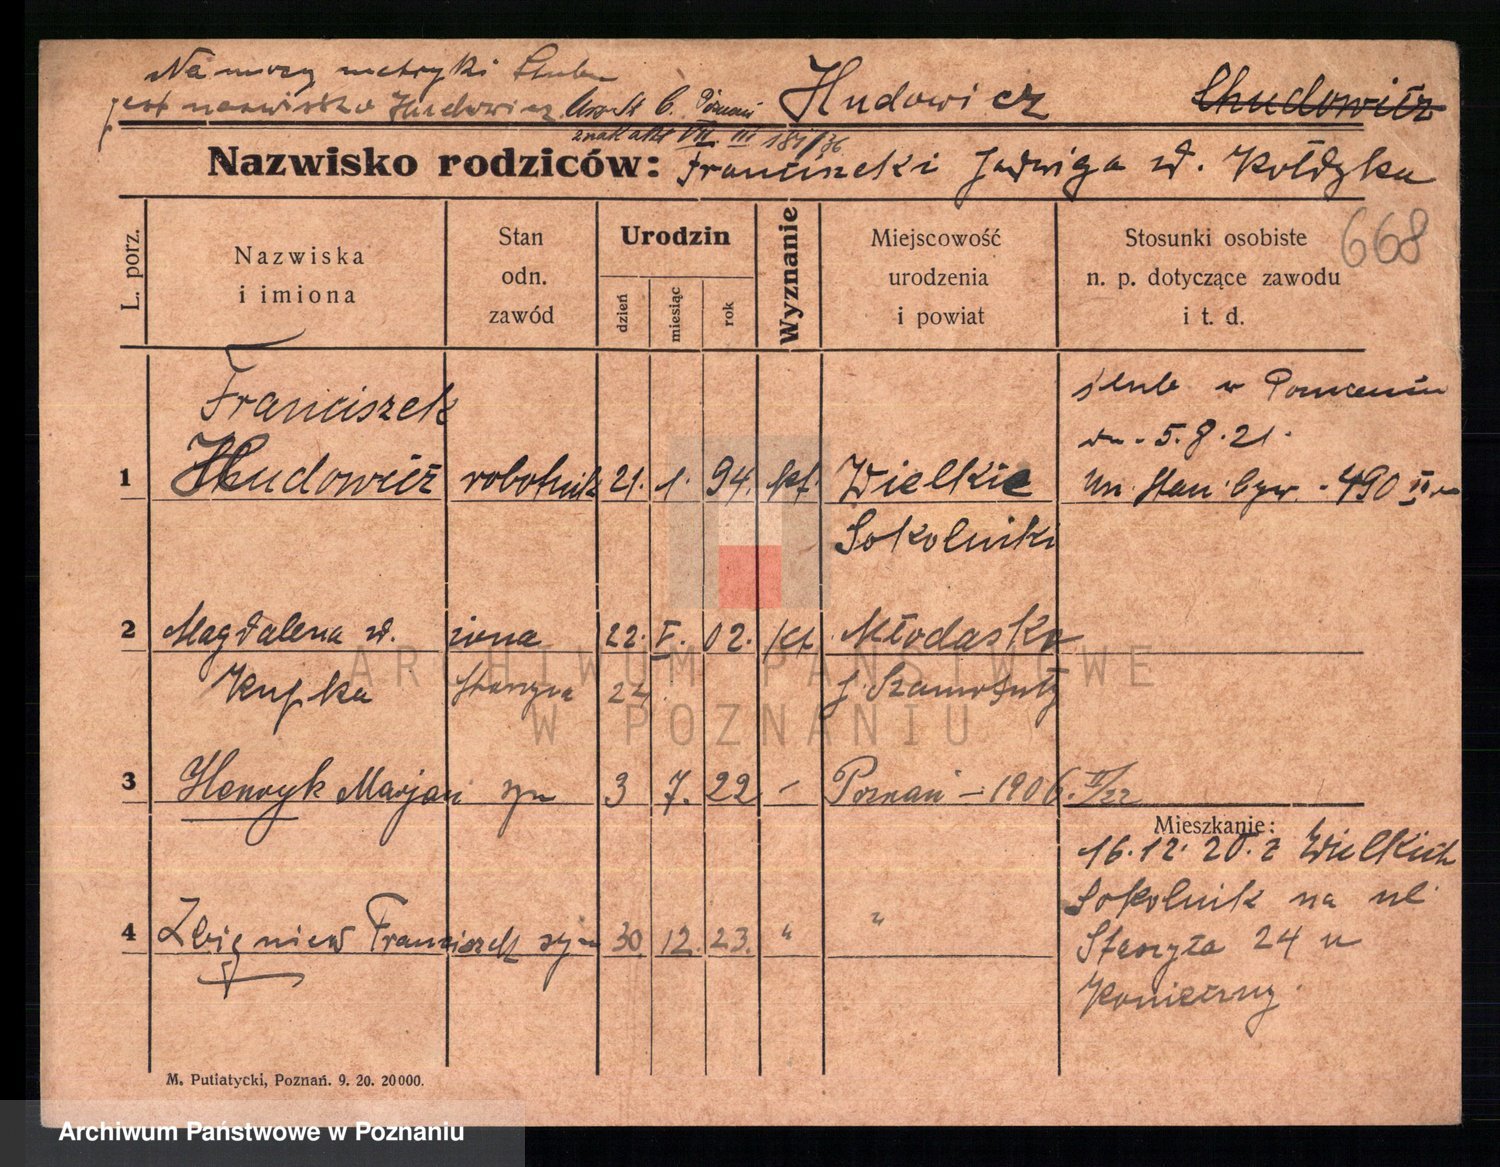 Na mocy metryki ślubu
Hudowicz
Chudowicz
jest nazwisko Hudowicz
Poznań
znak akt VII. III 181/36
Nazwisko rodziców: Franciszek i Jadwiga zd. Kołdyka
668
L. porz.
Nazwiska
i imiona
Stan
odn.
zawód
Urodzin
dzień
miesiąc
rok
Wyznanie
Miejscowość
urodzenia
i powiat
Stosunki osobiste
n. p. dotyczące zawodu
i t. d.
Franciszek
ślub w Poznaniu
dn. 5. 8. 21.
1 Hudowicz robotnik 21. 1. 94. kt. Wielkie
Urz. Stan. Cyw. 490
Sokolniki
2 Magdalena zd. żona 22. V. 02. kt. Młodasko
Kupka 22 p. Szamotuły
3 Henryk Marjan syn 3 7. 22 - Poznań - 1906.
Mieszkanie:
16. 12. 20. z Wielkich
Sokolnik na ul.
4 Zbigniew Franciszek syn 30 12. 23. " "
Staszyca 24 u
M. Putiatycki, Poznań. 9. 20. 20 000.
ARCHIWUM PAŃSTWOWE
W POZNANIU
Archiwum Państwowe w Poznaniu